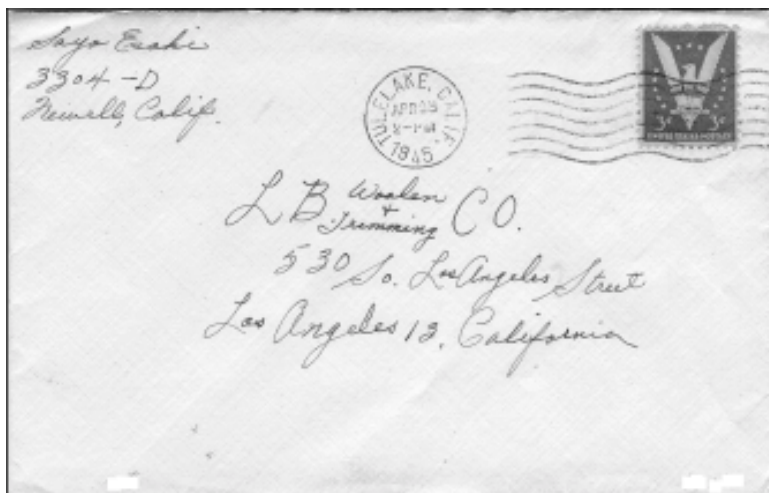 Sayo Esaki
3304-D
Newell, Calif.
TULELAKE, CALIF.
APR
2-PM
1945
3¢ 3¢
UNITED STATES POSTAGE
L B Woolen
+
Trimming CO.
530 So. Los Angeles Street
Los Angeles 13, California